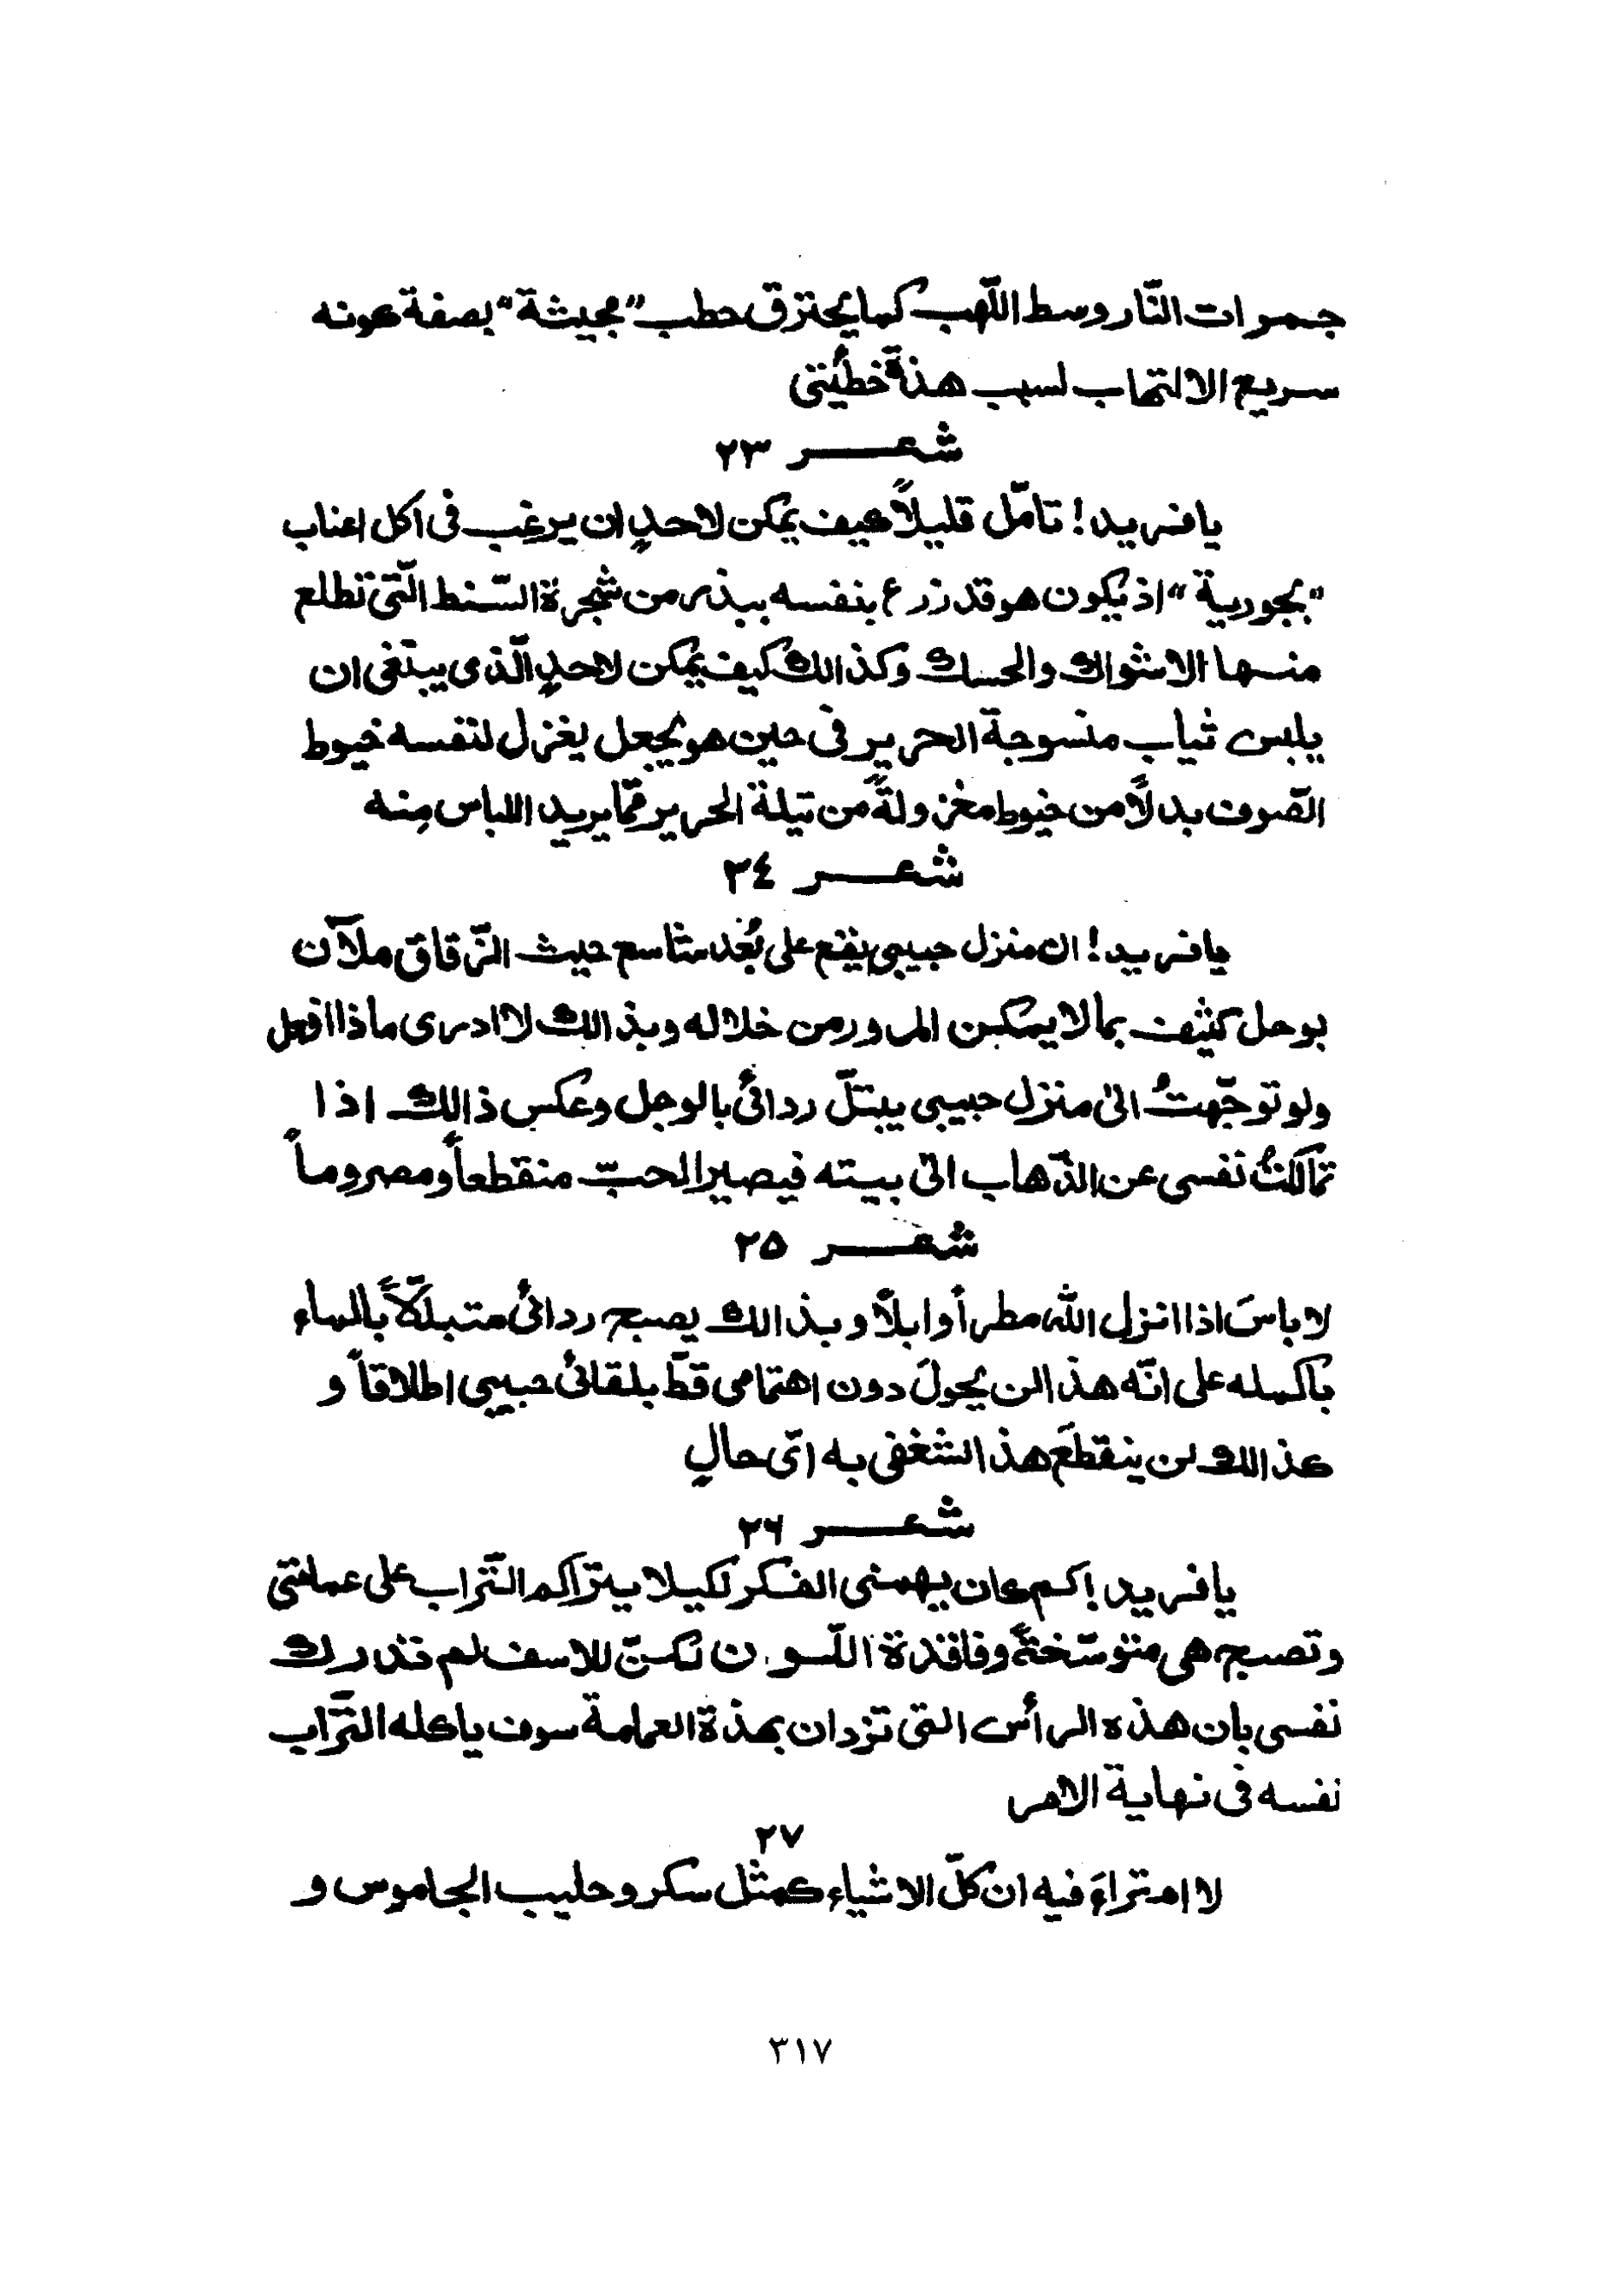 جمرات النّار وسط اللّهب كما يحترق حطب "مجيثة" بصفة كونه
سريع الالتهاب لسبب هذة خطيئتى
شعر ٢٣
يا فريد! تامّل قليلاً كيف يمكن لاحدٍ ان يرغب فى اكل اعناب
"بجورية" اذ يكون هو قد زرع بنفسه ببذر من شجرة السّنط الّتى تطلع
منها الاشواك والحسك وكذالك كيف يمكن لاحدٍ الّذى يبتغى ان
يلبس ثياب منسوجة الحرير فى حين هو يجعل يغزل لنفسه خيوط
الصّوف بدلاً من خيوط مغزولةً من تيلة الحرير ممّا يريد اللباس مِنه
شعر ٢٤
يا فريد! ان منزل حبيبى يقع على بُعد شاسع حيث الزّقاق ملآن
بوحل كثيف بما لا يمكن المرور من خلاله وبذالك لا ادرى ماذا افعل
ولو توجّهتُ الى منزل حبيبى يبتلّ ردائى بالوحل وعكس ذالك اذا
تمالكتُ نفسى عن الذّهاب الى بيته فيصير الحبّ منقطعاً ومصروماً
شعر ٢٥
لا باسَ اذا انزل الله مطراً وابلاً وبذالك يصبح ردائى متبلّلاً بالماء
باكمله على انّه هذا لن يحولَ دون اهتمامى قطّ بلقائى حبيبى اطلاقاً و
كذالك لن ينقطعَ هذا الشغفى به اىّ حالٍ
شعر ٢٦
يا فريد! كم كان يهمنى الفكر لكيلا يتراكم التّراب على عمامتى
وتصبح هى متوسّخةً وفاقدة اللّون لكنّ للاسف لم تدرك
نفسى بان هذه الرأس التى تزدان بهذة العمامة سوف ياكله التّراب
نفسه فى نهاية الامر
٢٧
لا امتراءَ فيه ان كلّ الاشياء كمثل سكر وحليب الجاموس و
٣١٧